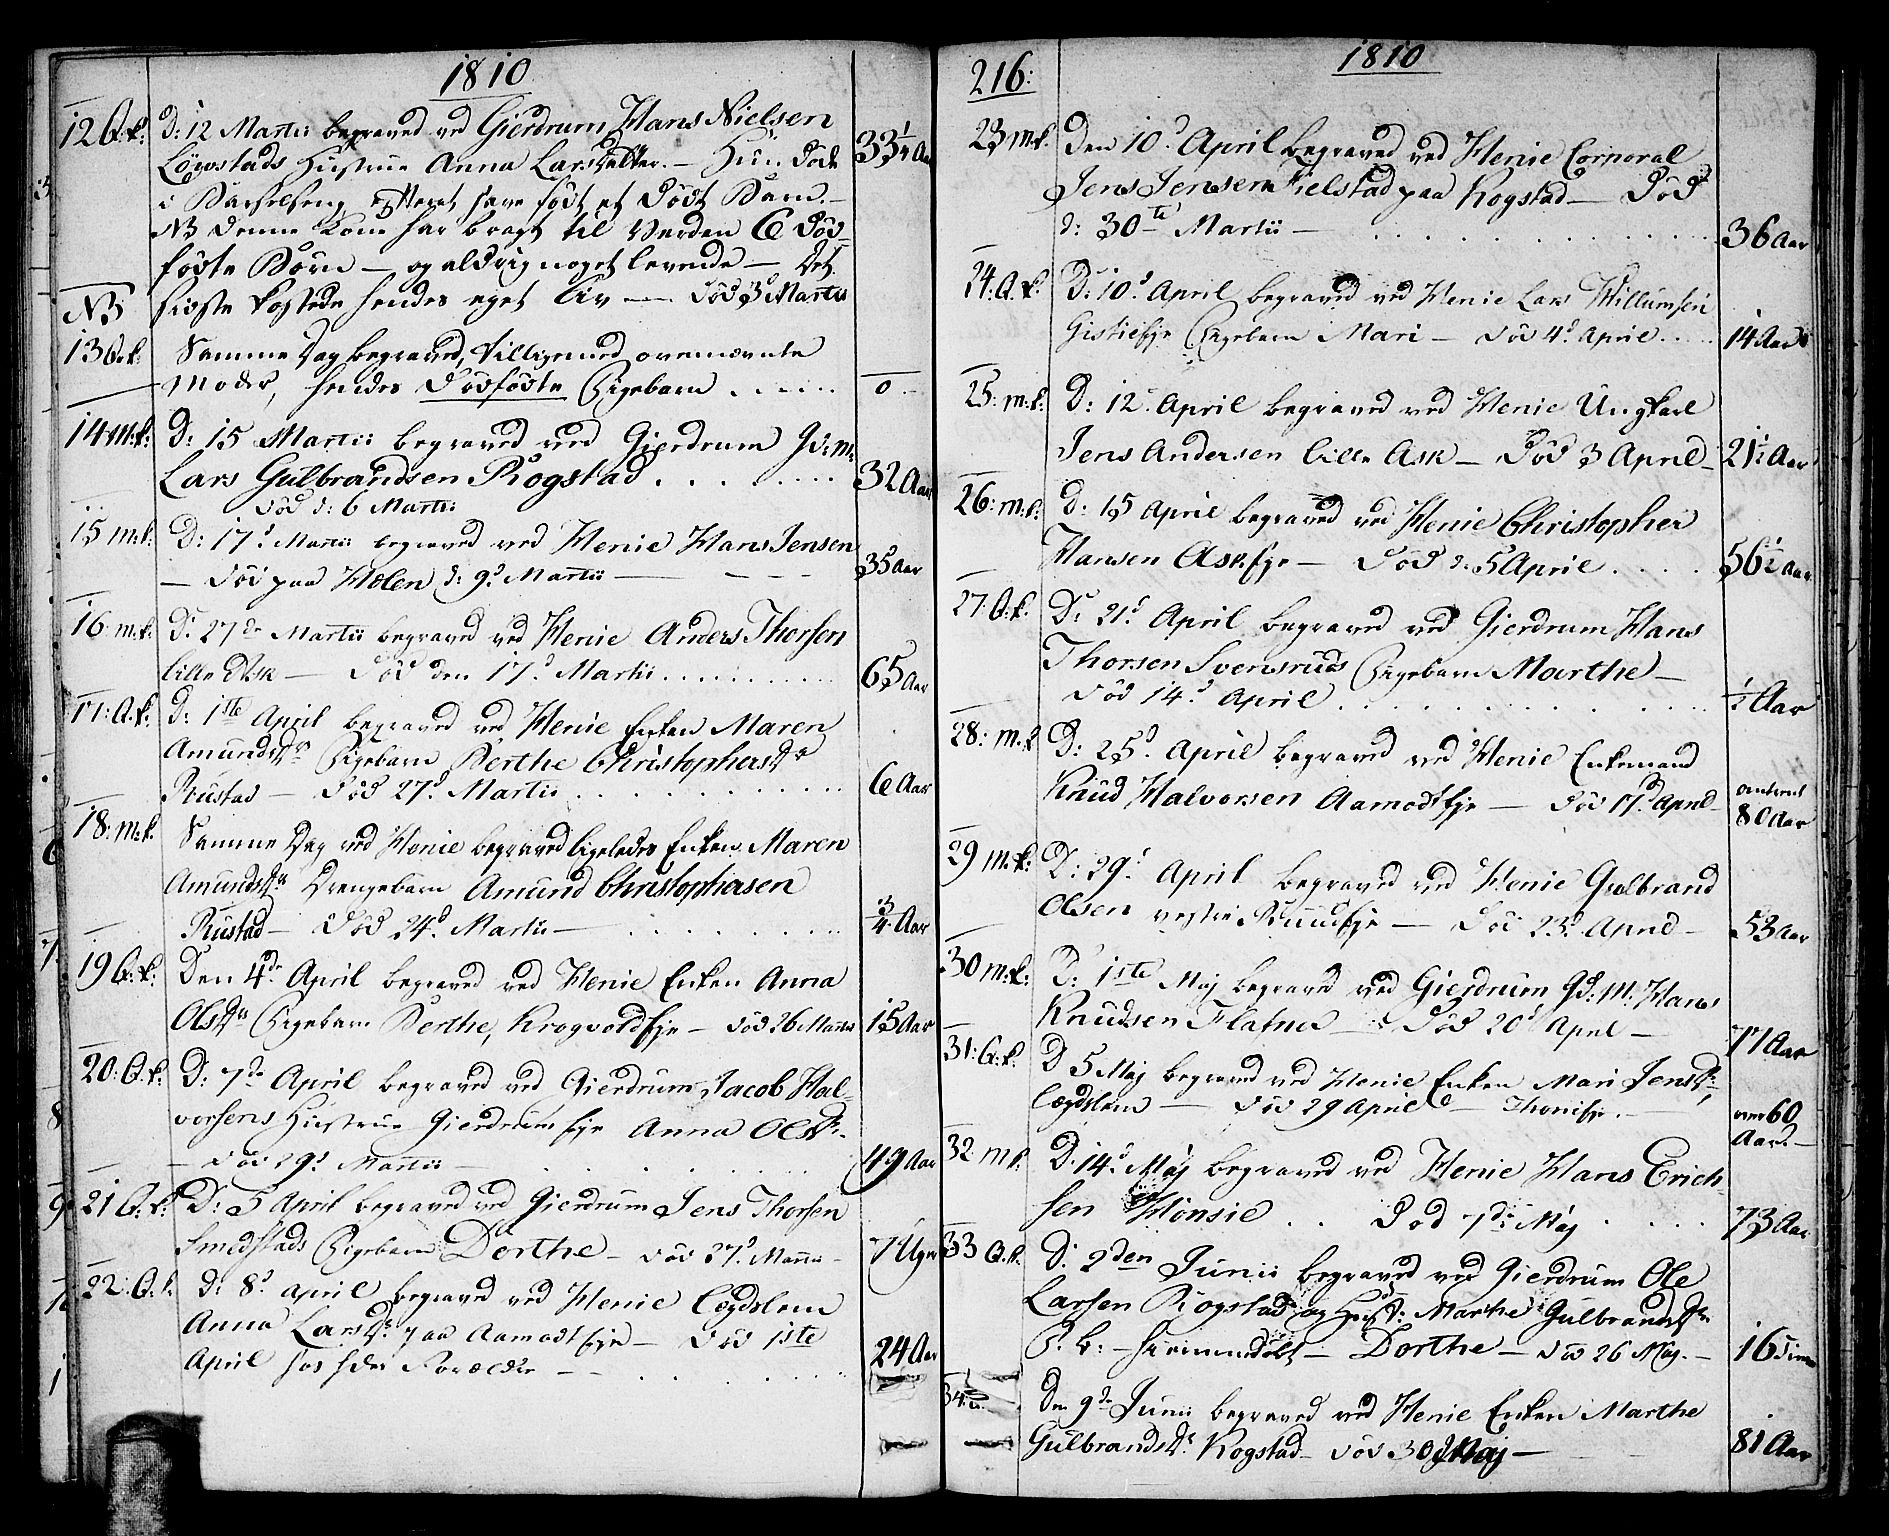 1810
12 Q.k: D: 12 Martii begraved ved Gierdrum Hans Nielsen
Løvstads Hustrue Anna Larsdatter. — Hun døde 33 1/4 Aar
i Barselseng efter at have født et dødt Barn. —
NB denne Kone har bragt til Verden 6 død-
fødte Børn — og aldrig noget levende — Det
NB sidste kostede hendes eget Liv — død 3d Martii
13 Q.k: Samme Dag begraved, tilligemed ovennævnte
Moder, hendes dødfødte Pigebarn . . . . . 0
14 M:k: D: 15 Martii begraved ved Gierdrum Gd:m:
Lars Gulbrandsen Rogstad . . . . . 32 Aar
død d: 6 Martii
15 m.k: D: 17d Martii begraved ved Henie Hans Jensen
— død paa Holen d: 9d Martii — 35 Aar
16: m.k: D: 27de Martii begraved ved Henie Anders Thorsen
Lille Ask — død den 17d Martii . . . . . 65 Aar
17: Q.k: D: 1ste April begraved ved Henie Enken Maren
Amundsdr Pigebarn Berthe Christophersdr
Rustad — død 27d Martii . . . . . 6 Aar
18: m.k: Samme Dag ved Henie begraved ligeledes Enken Maren
Amundsdr Drengebarn Amund Christophersen
Rustad — død 24d Martii — . . . . . 3/4 Aar
19 Q.k: Den 4de April begraved ved Henie Enken Anna
Olsdr Pigebarn Berthe, Krogvoldeje — død 26 Martii 15 Aar
20: Q.k: D: 7de April begraved ved Gierdrum Jacob Hal-
vorsens Hustrue Gierdrumseje Anna Olsdr. —
— død 29d Martii — 49 Aar
21 Q.k: D: 5 April begraved ved Gierdrum Jens Thorsen
Smedstads Pigebarn Dorthe — død 27d Martii — 7 Uger
22: Q.k: D: 8d April begraved ved Henie Lægdslem
Anna Larsdr paa Aamodteje — død 1ste
April hos sine Forældre — — . . . . . 24 Aar
216:
1810
23 m.k: Den 10d April begraved ved Henie Corporal
Jens Jensen Fielstad paa Kogstad — død
d: 30te Martii — . . . . . 36 Aar
24: Q.k: D: 10d April begraved ved Henie Lars Willumsen
Gistieseje Pigebarn Mari — død 4d April . . . . . 14 Aar
25: m.k: D: 12 April begraved ved Henie Ungkarl
Jens Andersen Lille Ask — død 3 April — 21 1/2 Aar
26: m.k: D: 15 April begraved ved Henie Christopher
Hansen Askeje — død d: 5 April . . . . 56 1/2 Aar
27: Q.k: D: 21d April begraved ved Gierdrum Hans
Thorsen Svensruds Pigebarn Marthe —
død 14d April . . . . . 1/2 Aar
28: m.k D: 25d April begraved ved Henie Enkemand
Knud Halvorsen Aamodteje — død 17d April — omtrent 80 Aar
29 m.k: D: 29d April begraved ved Henie Gulbrand
Olsen vestre Ruudeje — død 23d April — 53 Aar
30 m.k: D: 1ste Maj begraved ved Gierdrum Gd: M: Hans
Knudsen Flatner — død 20d April — 77 Aar
31: Q.k: D 5 Maj begraved ved Henie Enken Mari Jensdr,
Lægdslem — død 29 April — . — over 60 Aar. —
32 m.k: D: 14d Maj begraved ved Henie Hans Erich-
sen Hønsie . . død 7de Maj . . . . . 73 Aar
33 Q.k: D: 2den Junii begraved ved Gierdrum Ole
Larsen Rogstad og Hustr: Marthe Gulbrandsdr
P. b: — hiemmedøbt — Dorthe — død 26 Maj. — 16 Timer
34: Den 9de Junii begraved ved Henie Enken Marthe
Gulbrandsdr Kogstad — død 30 Maj — 81 Aar